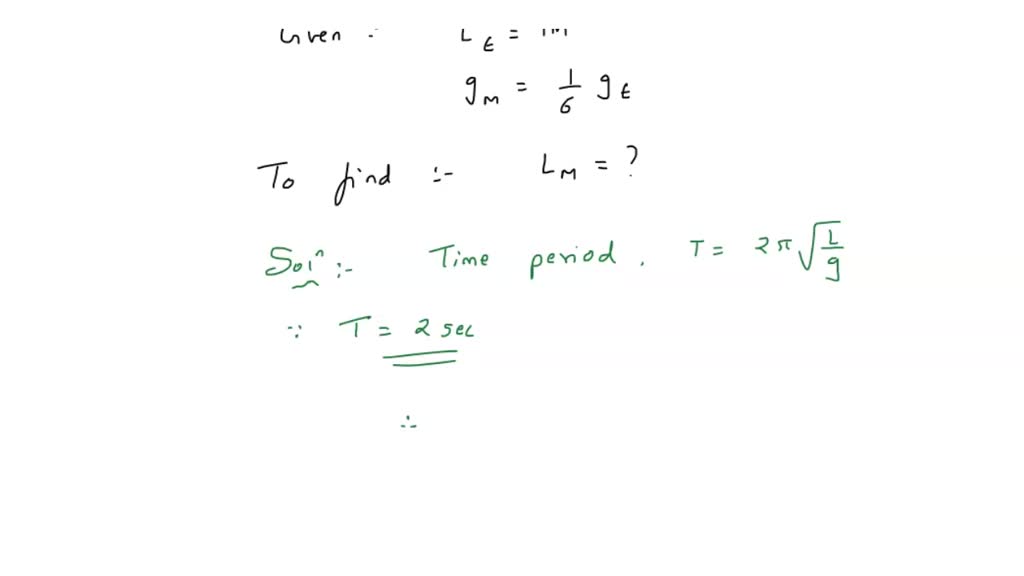 Given :-
L_E = 1m
g_M = 1/6 g_E
To find :- L_M = ?
Solⁿ :- Time period , T = 2π√(L/g)
∵ T = 2 sec
∴